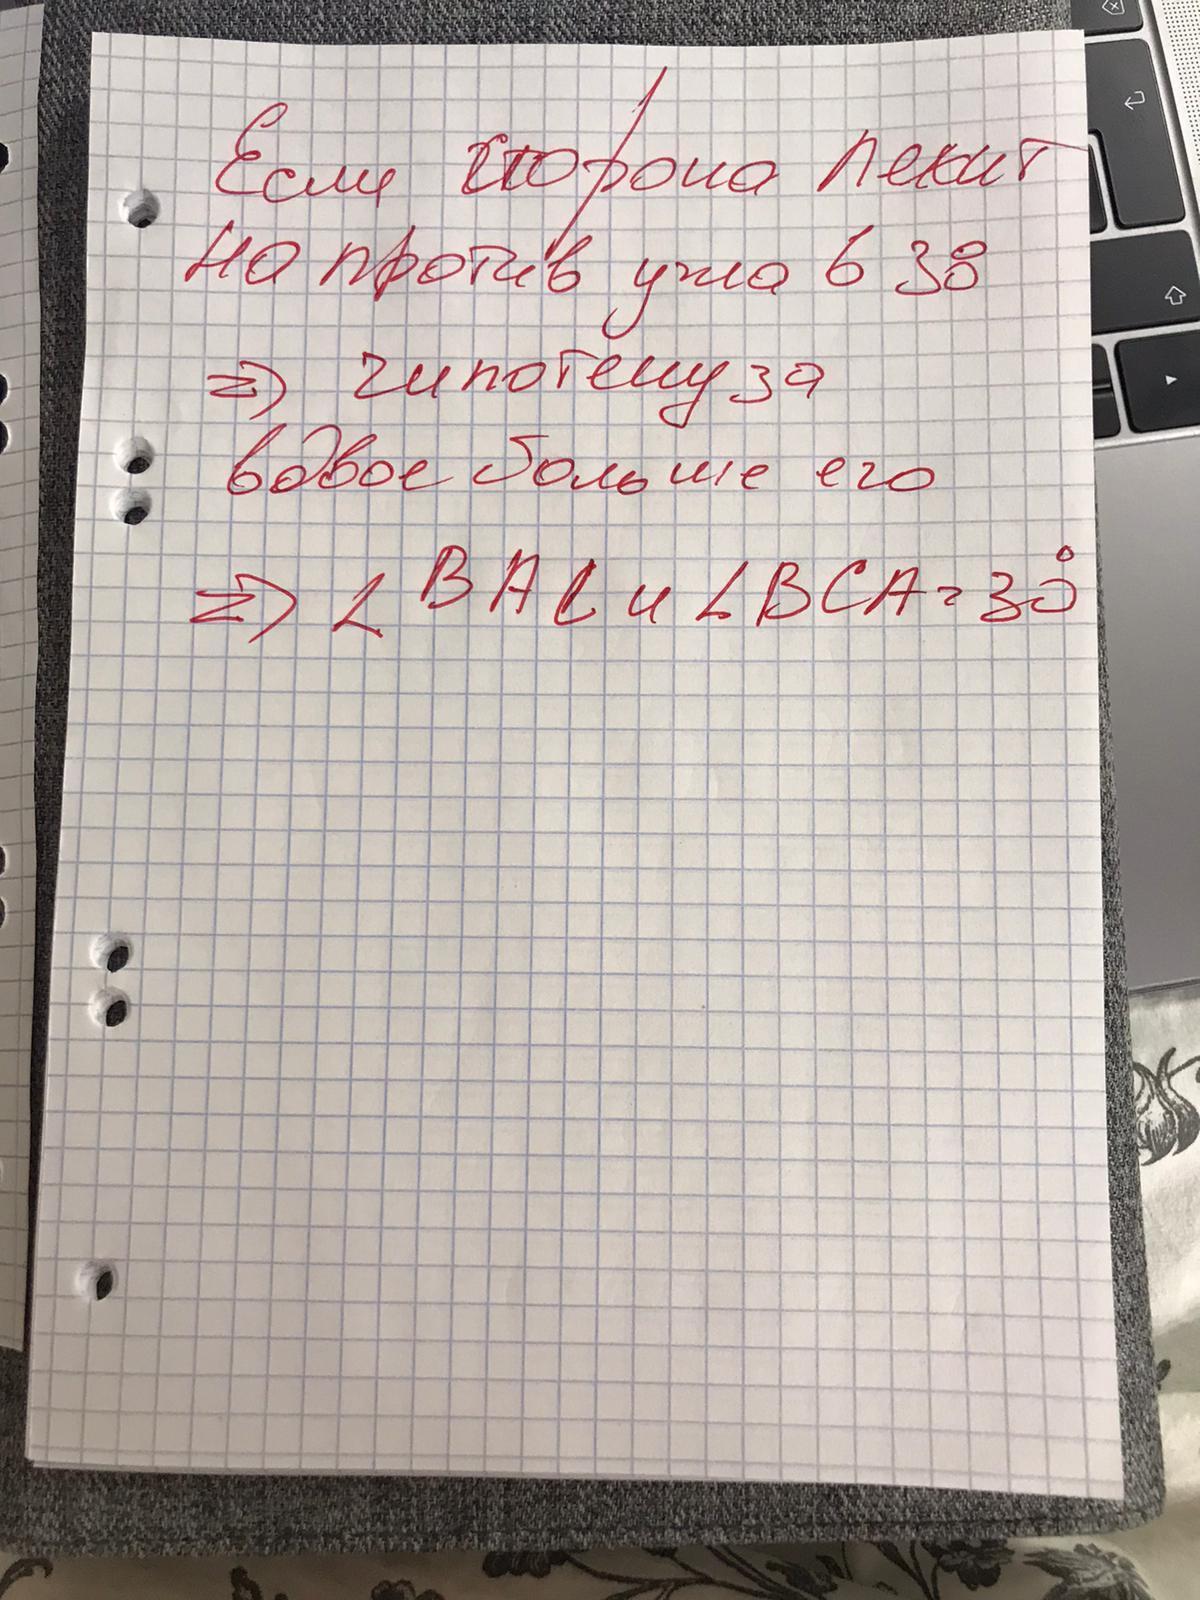 Если сторона лежит
на против угла в 30
=> гипотенуза
вдвое больше его
=> ∠BAC и ∠BCA = 30°